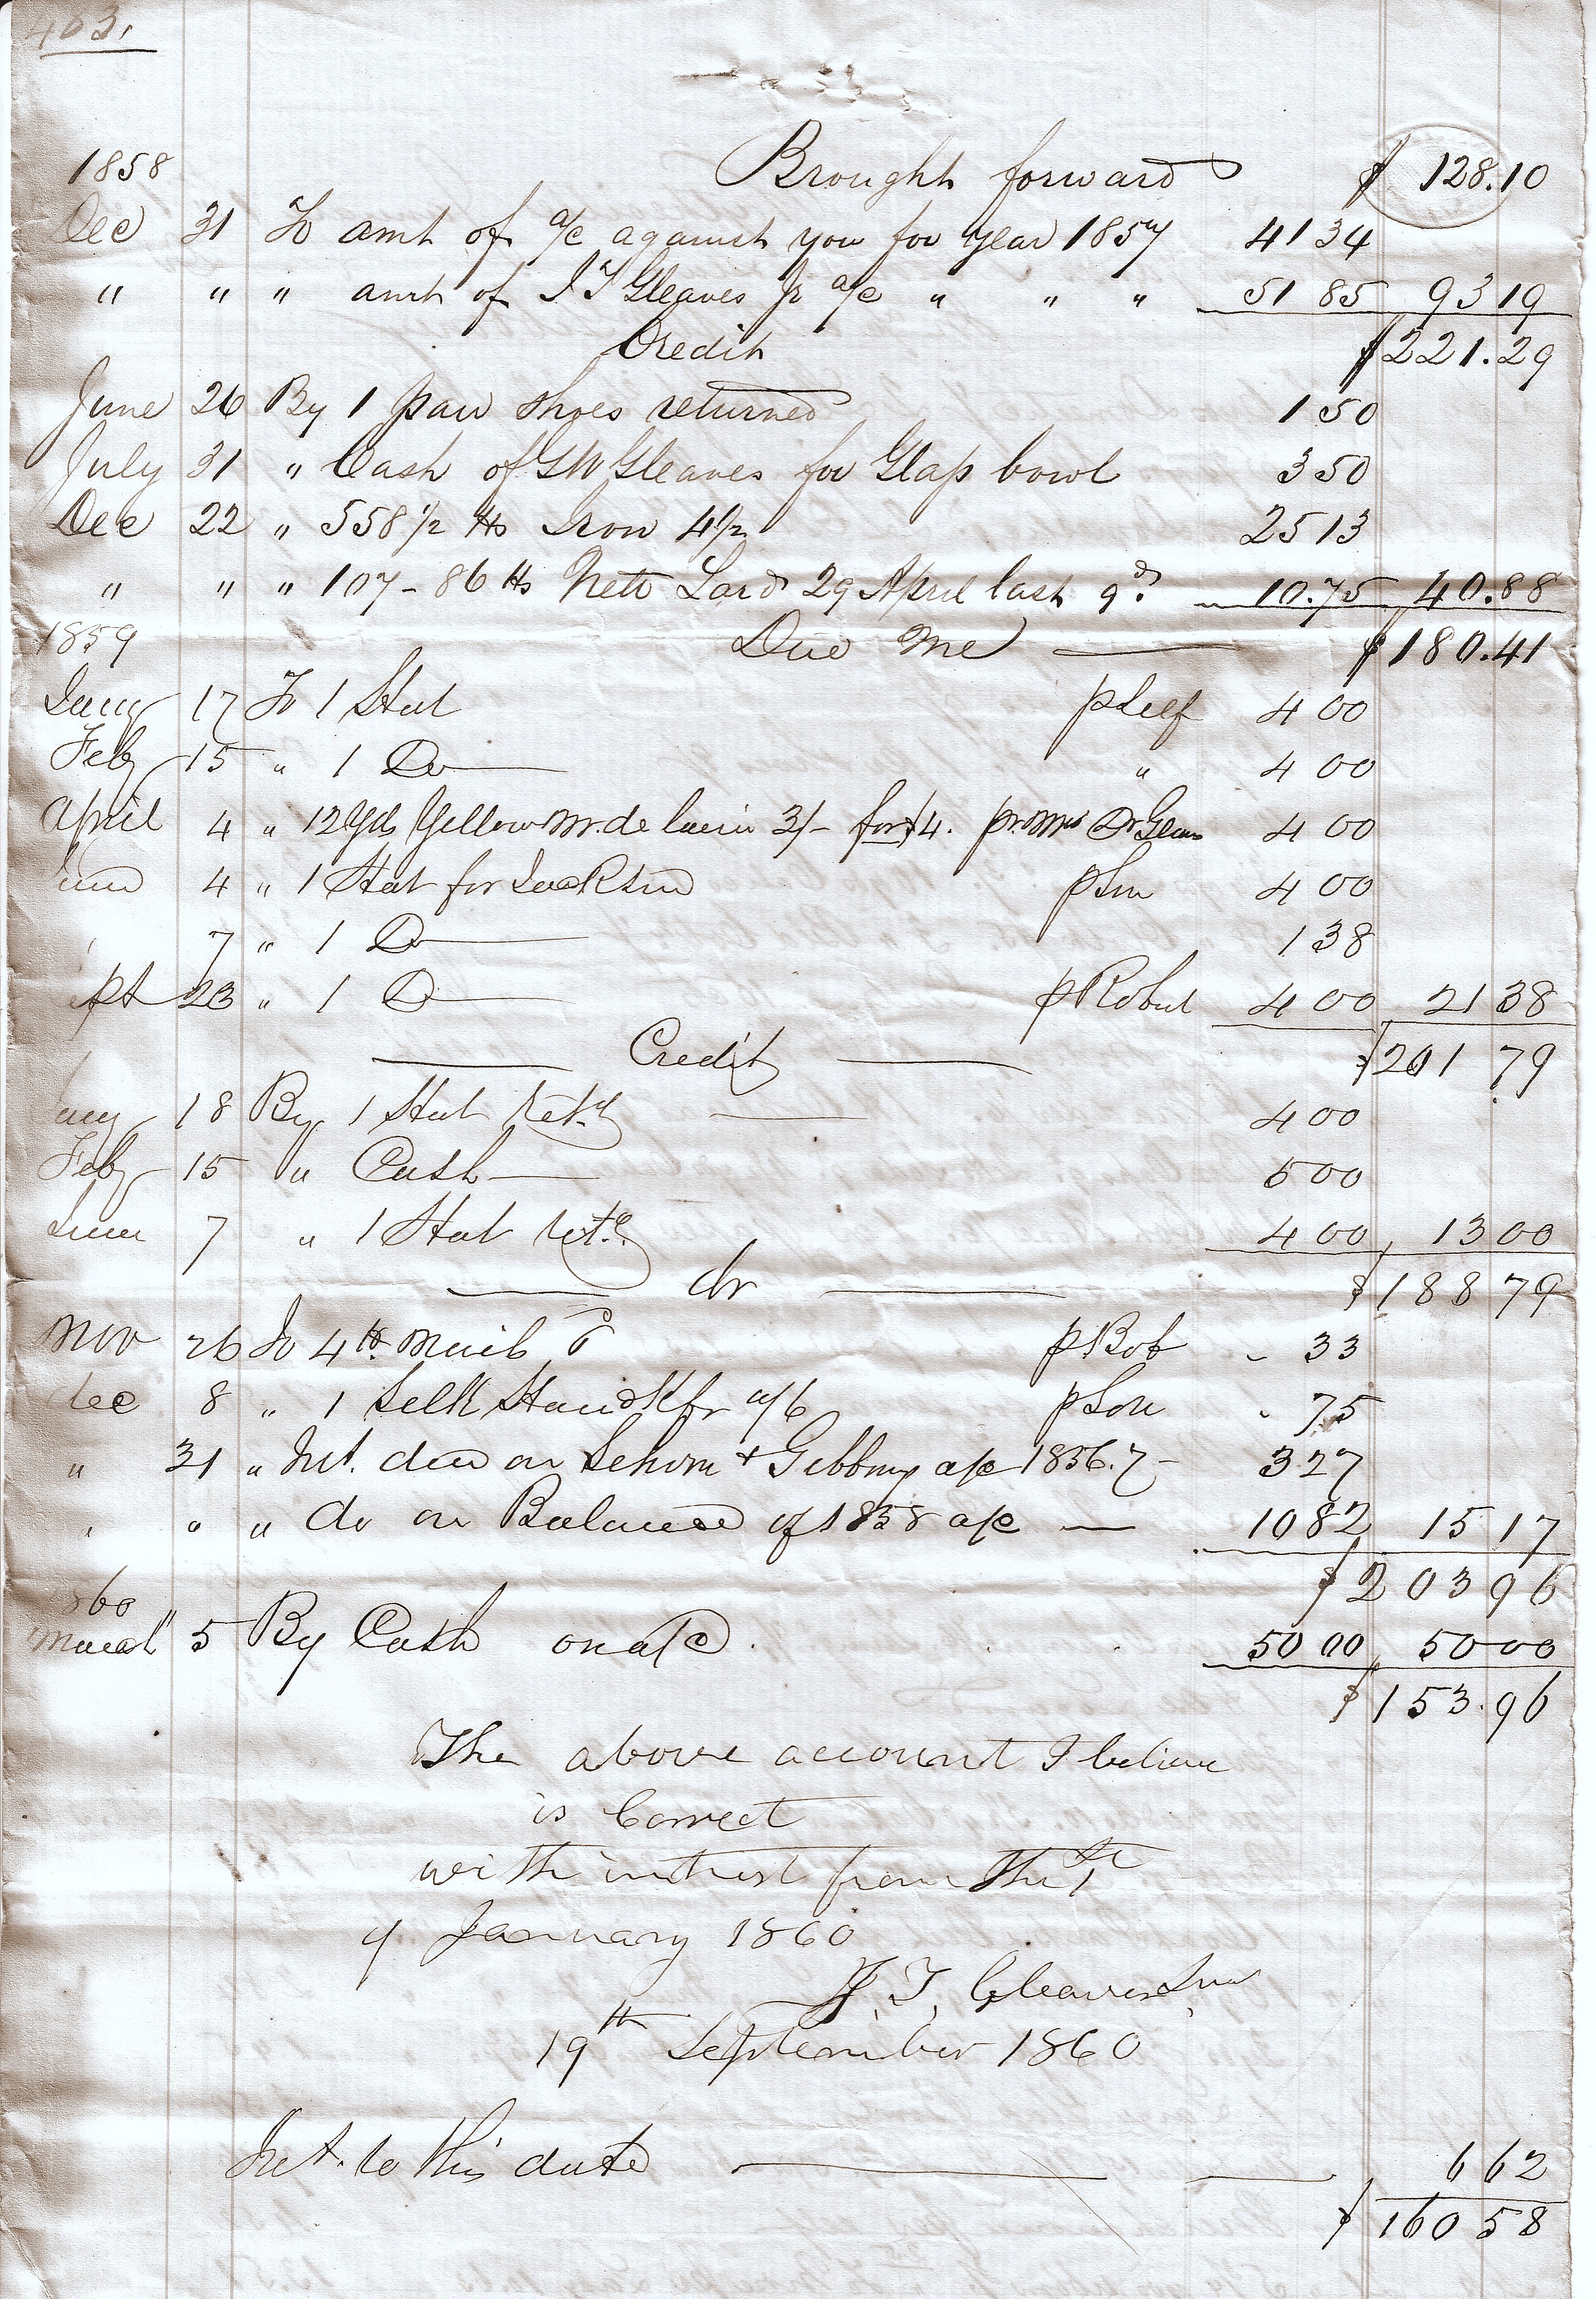 403.
Brought forward $ 128.10
1858
Dec 31 To amt of a/c against you for year 1857 41 34
" " " amt of J T Gleaves Jr a/c " " " 51 85 93 19
Credit $221.29
June 26 By 1 pair shoes returned 1 50
July 31 " Cash of GW Gleaves for Glass bowl 3 50
Dec 22 " 558 1/2 lbs Iron 4 1/2 25 13
" " " 107-86 lbs Nett Lard 29 April last 10.75 40.88
1859 Due me $180.41
Jany 17 To 1 Hat p Self 4 00
Feby 15 " 1 Do " 4 00
April 4 " 12 Yds Yellow M. de lain 3/- for $4. pr Mrs Dr 4 00
June 4 " 1 Hat for Jackson p Son 4 00
7 " 1 Do 1 38
pt 23 " 1 Do p Robert 4 00 21 38
Credit $201 79
any 18 By 1 Hat Retd 4 00
Feby 15 " Cash 5 00
June 7 " 1 Hat retd. 4 00 13 00
dr $188 79
Nov 26 To 4 lb. nails p Bob - 33
dec 8 " 1 Silk Handkfr p Son " 75
" 31 " Int. due on & a/c 1856.7 - 3.27
" " " do on Balance of 1858 a/c 10 82 15 17
$203 96
1860
March 5 By Cash on a/c. 50 00 50 00
$153.96
The above account I believe
is Correct
with intrest from the 1st
of January 1860
J. T. Gleaves Snr
19th September 1860
Int. to this date 6 62
$160 58